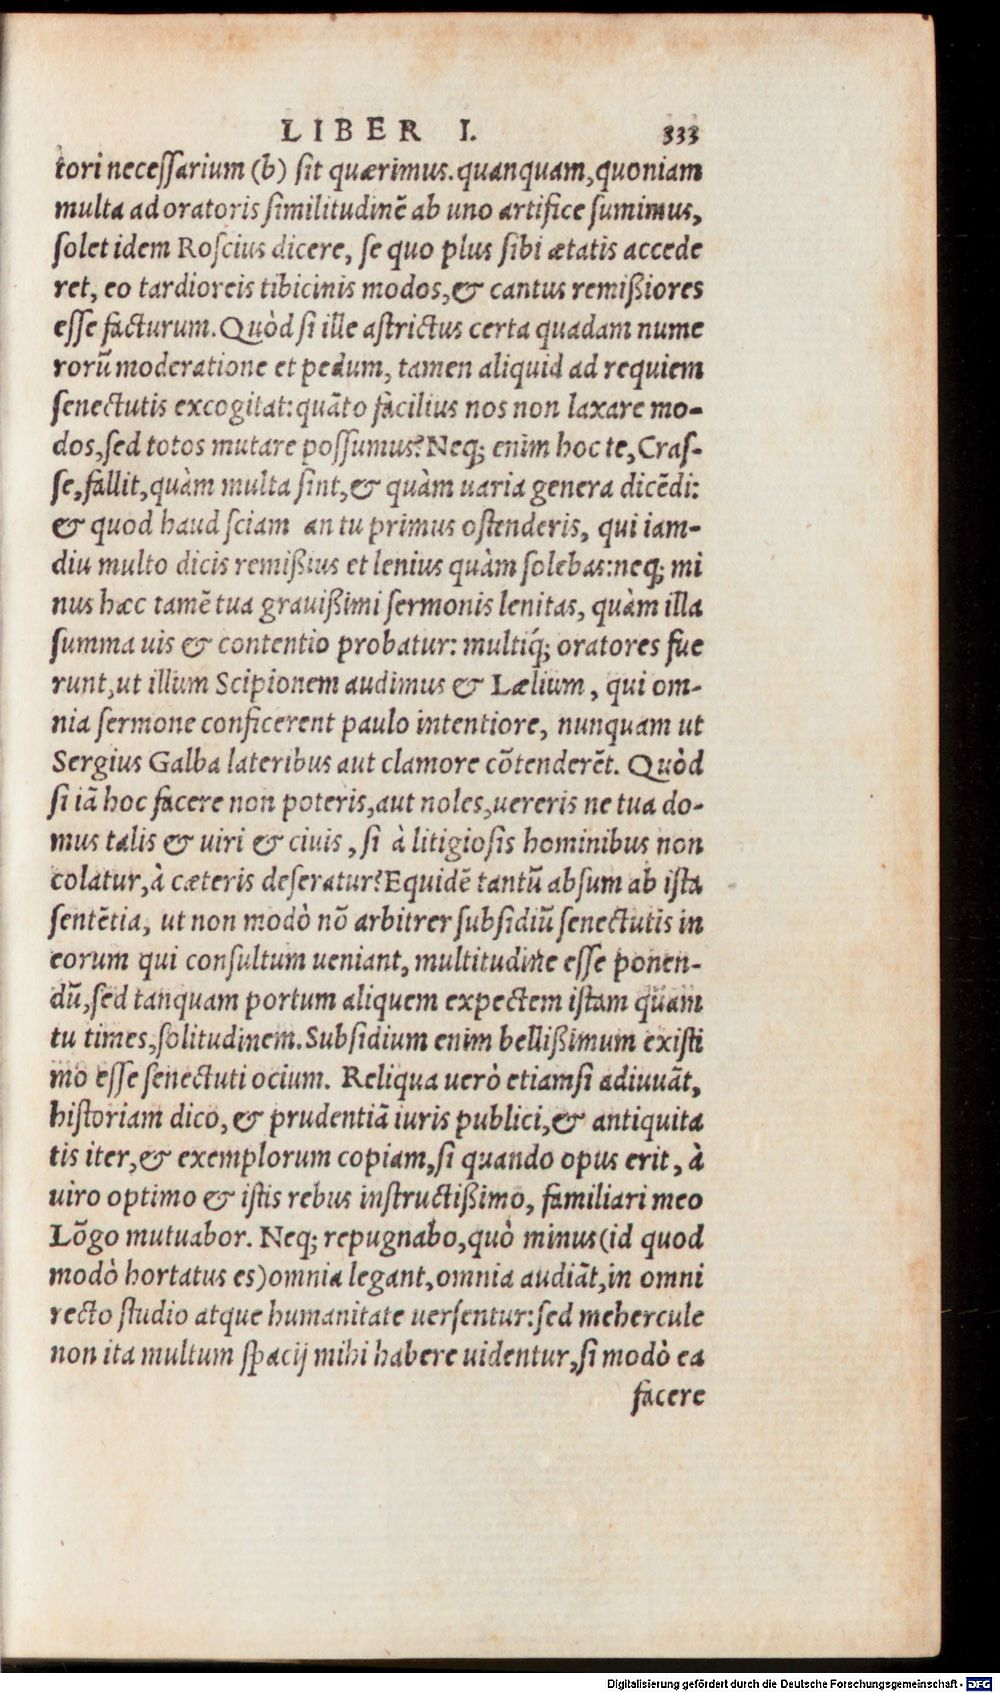 LIBER I. 333
tori necessarium (b) sit quærimus. quanquam, quoniam
multa ad oratoris similitudinē ab uno artifice sumimus,
solet idem Roscius dicere, se quo plus sibi ætatis accede
ret, eo tardioreis tibicinis modos, & cantus remißiores
esse facturum. Quòd si ille astrictus certa quadam nume
rorū moderatione et pedum, tamen aliquid ad requiem
senectutis excogitat: quāto facilius nos non laxare mo-
dos, sed totos mutare possumus? Neq; enim hoc te, Cras-
se, fallit, quàm multa sint, & quàm uaria genera dicēdi:
& quod haud sciam an tu primus ostenderis, qui iam-
diu multo dicis remißius et lenius quàm solebas: neq; mi
nus hæc tamē tua grauißimi sermonis lenitas, quàm illa
summa uis & contentio probatur: multiq́; oratores fue
runt, ut illum Scipionem audimus & Lælium, qui om-
nia sermone conficerent paulo intentiore, nunquam ut
Sergius Galba lateribus aut clamore cōtenderēt. Quòd
si iā hoc facere non poteris, aut noles, uereris ne tua do-
mus talis & uiri & ciuis, si à litigiosis hominibus non
colatur, à cæteris deseratur? Equidē tantū absum ab ista
sentētia, ut non modò nō arbitrer subsidiū senectutis in
eorum qui consultum ueniant, multitudine esse ponen-
dū, sed tanquam portum aliquem expectem istam quam
tu times, solitudinem. Subsidium enim bellißimum existi
mo esse senectuti ocium. Reliqua uerò etiamsi adiuuāt,
historiam dico, & prudentiā iuris publici, & antiquita
tis iter, & exemplorum copiam, si quando opus erit, à
uiro optimo & istis rebus instructißimo, familiari meo
Lōgo mutuabor. Neq; repugnabo, quò minus (id quod
modò hortatus es) omnia legant, omnia audiāt, in omni
recto studio atque humanitate uersentur: sed mehercule
non ita multum spacij mihi habere uidentur, si modò ea
facere
Digitalisierung gefördert durch die Deutsche Forschungsgemeinschaft - DFG